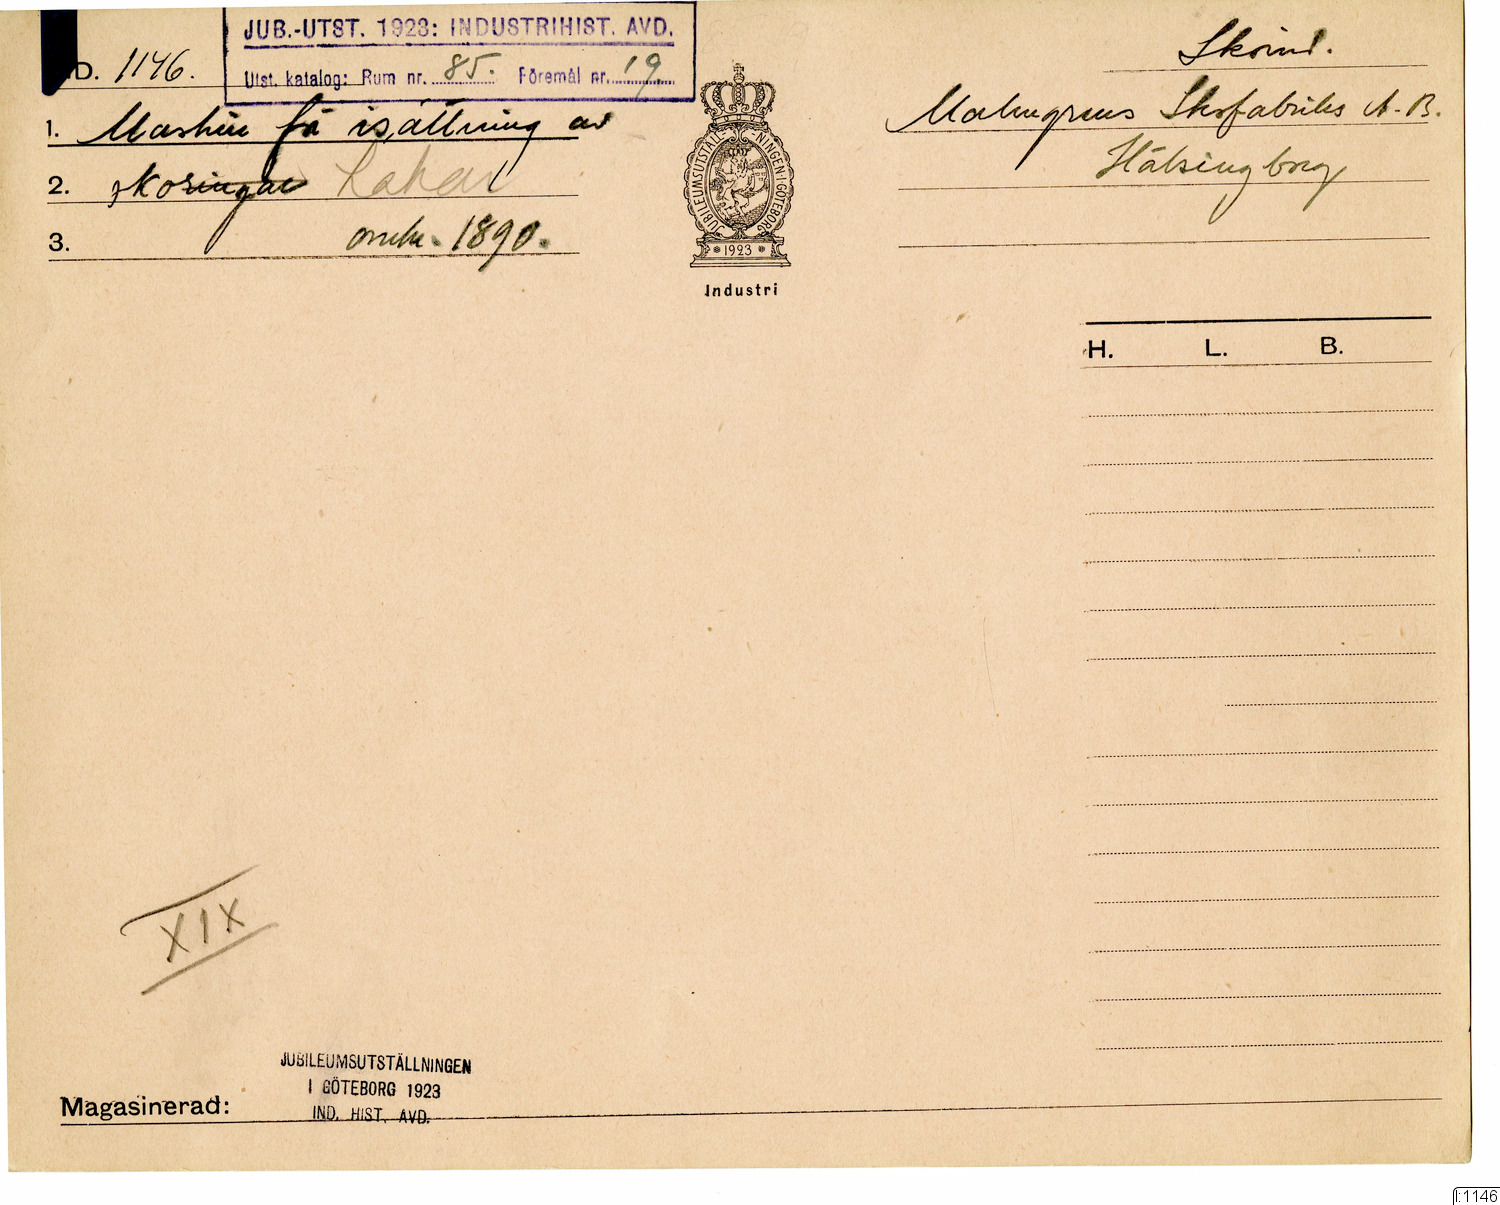 JUB.-UTST. 1923: INDUSTRIHIST. AVD.
Utst. katalog: Rum nr. 85. Föremål nr. 19
D. 1146.
1. Maskin för isättning av
2. skoringar hakar
3. omkr. 1890.
JUBILEUMSUTSTÄLLNINGEN I GÖTEBORG
1923
Industri
Skoind.
Malmgrens Skofabriks A.-B.
Hälsingborg
H. L. B.
XIX
JUBILEUMSUTSTÄLLNINGEN
I GÖTEBORG 1923
IND. HIST. AVD.
Magasinerad:
I:1146